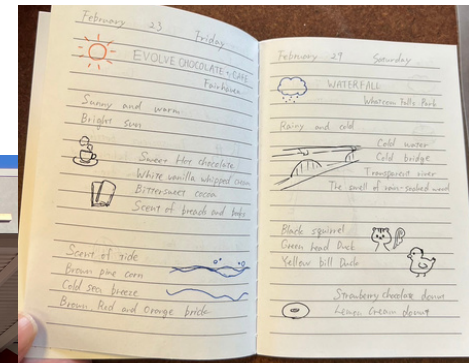 February 23 Friday
EVOLVE CHOCOLATE + CAFE
Fairhaven
Sunny and warm
Bright sun
Sweet Hot chocolate
White vanilla whipped cream
Bittersweet cocoa
Scent of breads and
Scent of tide
Brown pine corn
Cold sea breeze
Brown Red and Orange brick
February 29 Saturday
WATERFALL
Whatcom Falls Park
Rainy and cold
Cold water
Cold bridge
Transparent river
The smell of rain-soaked wood
Black squirrel
Green head Duck
Yellow bill Duck
Strawberry chocolate donut
Lemon Cream donut